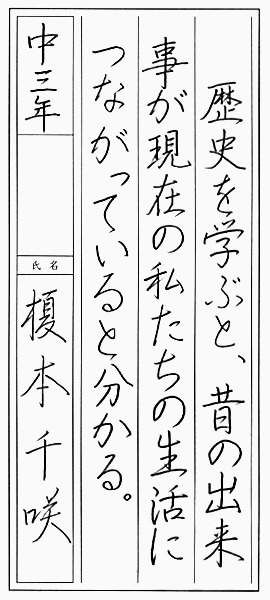 歴史を学ぶと、昔の出来
事が現在の私たちの生活に
つながっていると分かる。
中三年
氏名
榎本千咲